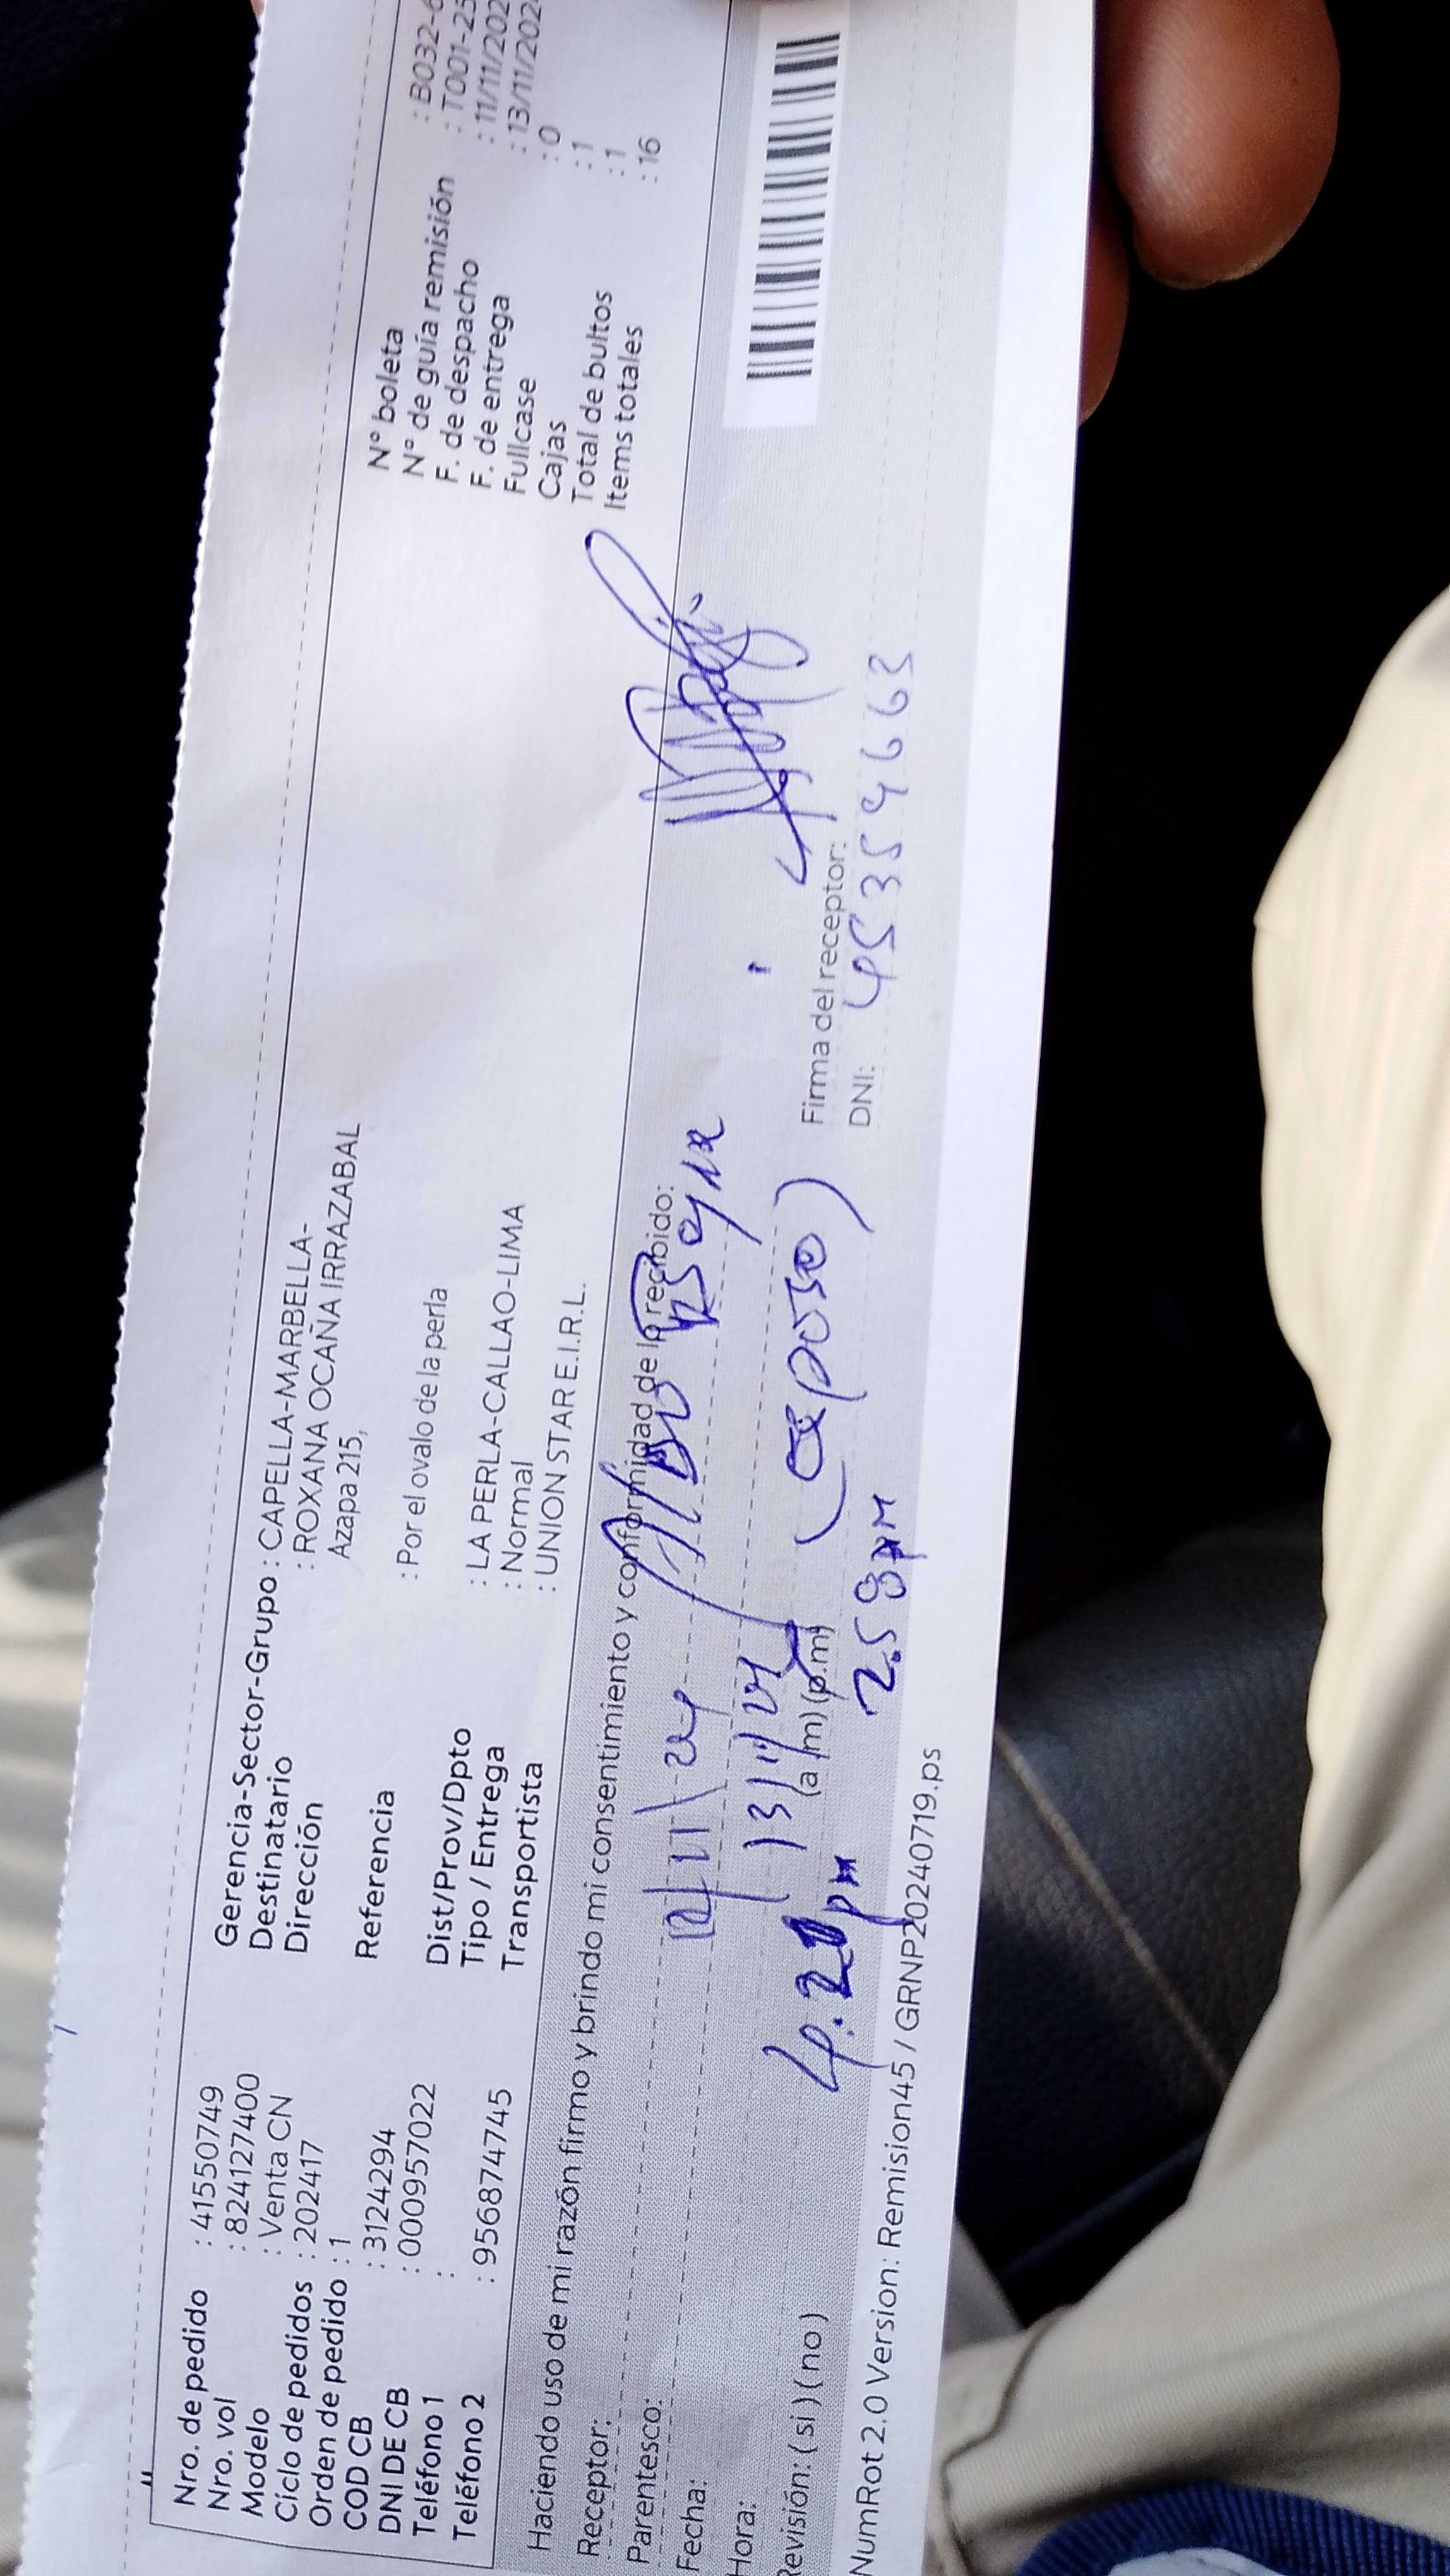 Nro. de pedido : 41550749
Nro. vol : 824127400
Modelo : Venta CN
Ciclo de pedidos : 202417
Orden de pedido : 1
COD CB : 3124294
DNI DE CB : 000957022
Teléfono 1 :
Teléfono 2 : 956874745
Gerencia-Sector-Grupo : CAPELLA-MARBELLA-
Destinatario : ROXANA OCAÑA IRRAZABAL
Dirección Azapa 215,
Referencia : Por el ovalo de la perla
Dist/Prov/Dpto : LA PERLA-CALLAO-LIMA
Tipo / Entrega : Normal
Transportista : UNION STAR E.I.R.L.
N° boleta : B032-6
N° de guía remisión : T001-25
F. de despacho : 11/11/202
F. de entrega : 13/11/202
Fullcase : 0
Cajas : 1
Total de bultos : 1
Items totales : 16
Haciendo uso de mi razón firmo y brindo mi consentimiento y conformidad de lo recibido:
Receptor:
Parentesco: 12/11/24
Fecha: 13/11/24 (esposo)
Hora: 4.20 pm (a.m) (p.m)
2.58 pm
Revisión: ( si ) ( no )
Firma del receptor:
DNI: 45354663
NumRot 2.0 Version: Remision45 / GRNP20240719.ps